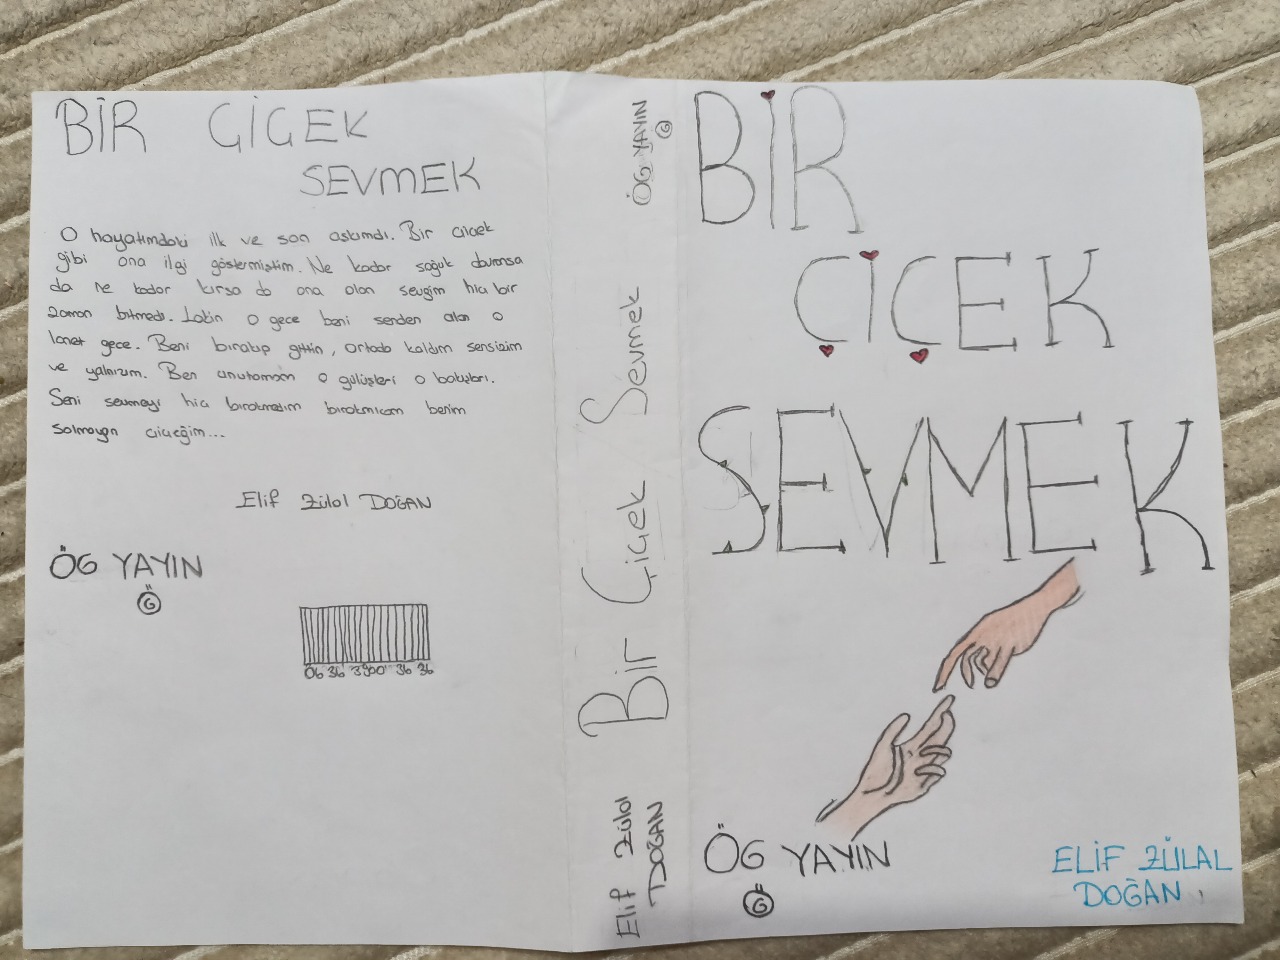 BİR ÇİÇEK
SEVMEK
O hayatımdaki ilk ve son aşkımdı. Bir çiçek
gibi ona ilgi göstermiştim. Ne kadar soğuk davransa
da ne kadar kırsa da ona olan sevgim hiç bir
zaman bitmedi. Lakin o gece beni senden alan o
lanet gece. Beni bırakıp gittin, ortada kaldım sensizim
ve yalnızım. Ben unutamam o gülüşleri o bakışları.
Seni sevmeyi hiç bırakmadım bırakmıcam benim
solmayan çiçeğim...
Elif Zülal DOĞAN
ÖG YAYIN
G
ÖG 36 3900 36 36
ÖG YAYIN
G
Bir Çiçek Sevmek
Elif Zülal
DOĞAN
BİR
ÇİÇEK
SEVMEK
ÖG YAYIN
G
ELİF ZÜLAL
DOĞAN